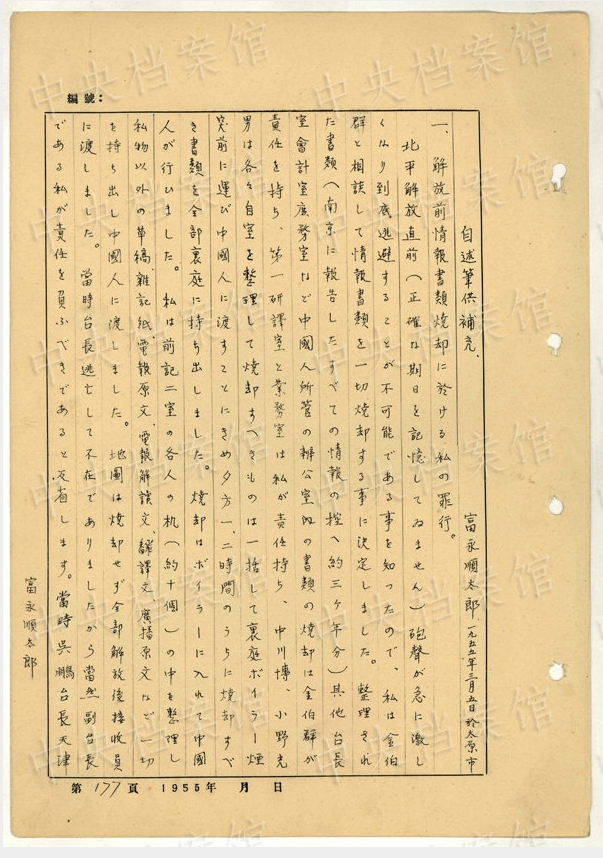 編號：
自述筆供補充．
富永順太郎．一九五五年三月五日於太原市
一、解放前情報書類焼却に於ける私の罪行。
北平解放直前（正確な期日を記憶してゐません）砲聲が急に激し
くなり到底逃避することが不可能である事を知ったので、私は金伯
群と相談して情報書類を一切焼却する事に決定しました。整理され
た書類（南京に報告したすべての情報の控へ約三ヶ年分）其他台長
室會計室庶務室など中國人所管の辦公室内の書類の焼却は金伯群が
責任を持ち、第一研譯室と業務室は私が責任持ち、中川博、小野光
男は各々自室を整理して焼却すべきものは一括して裏庭ボイラー煙
突前に運び中國人に渡すことにきめ夕方一、二時間のうちに焼却すべ
き書類を全部裏庭に持ち出しました。焼却はボイラーに入れて中國
人が行いました。私は前記二室の各人の机（約十個）の中を整理し
私物以外の草稿、雑記紙、電報原文、電報解読文、翻譯文、廣播原文など一切
を持ち出し中國人に渡しました。地圖は焼却せず全部解放後接收員
に渡しました。當時台長逃亡して不在でありましたから當然副台長
である私が責任を負ふべきであると反省します。當時呉鵬台長天津
富永順太郎
第177頁 1955年 月 日
中央档案馆